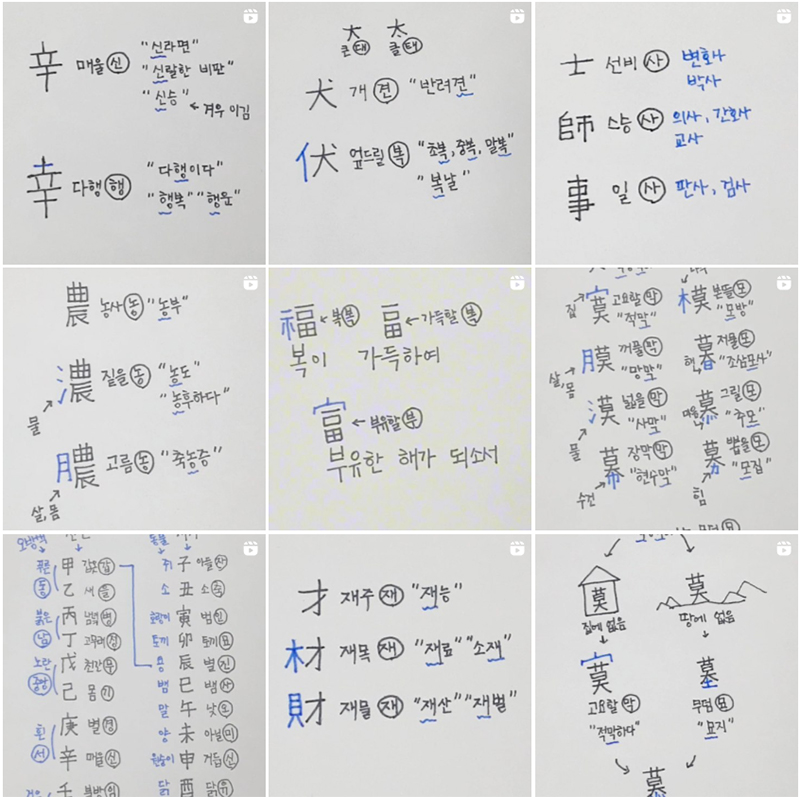 辛 매울 신 "신라면"
"신랄한 비판"
"신승" ← 겨우 이김
幸 다행 행 "다행이다"
"행복" "행운"
大 太
큰 대 클 태
犬 개 견 "반려견"
伏 엎드릴 복 "초복, 중복, 말복"
"복날"
士 선비 사 변호사
박사
師 스승 사 의사, 간호사
교사
事 일 사 판사, 검사
農 농사 농 "농부"
濃 짙을 농 "농도"
"농후하다"
물
膿 고름 농 "축농증"
살, 몸
福 ← 복 복 畐 ← 가득할 복
복이 가득하여
富 ← 부유할 부
부유한 해가 되소서
집 寞 고요할 막
"적막"
膜 꺼풀 막
"망막"
살, 몸
漠 넓을 막
"사막"
물
幕 장막 막
"현수막"
수건
模 본뜰 모
"모방"
暮 저물 모
해 "조삼모사"
慕 그릴 모
마음 "추모"
募 뽑을 모
"모집"
힘
오방색
푸른 동 甲 갑옷 갑
乙 새 을
붉은 남 丙 남녘 병
丁 고무래 정
노란 중앙 戊 천간 무
己 몸 기
흰 서 庚 별 경
辛 매울 신
壬 북방 임
동물
쥐 子 아들 자
소 丑 소 축
호랑이 寅 범 인
토끼 卯 토끼 묘
용 辰 별 진
뱀 巳 뱀 사
말 午 낮 오
양 未 아닐 미
원숭이 申 거듭 신
닭 酉 닭 유
才 재주 재 "재능"
材 재목 재 "재료" "소재"
財 재물 재 "재산" "재벌"
莫 莫
집에 없음 땅에 없음
寞 墓
고요할 막 무덤 묘
"적막하다" "묘지"